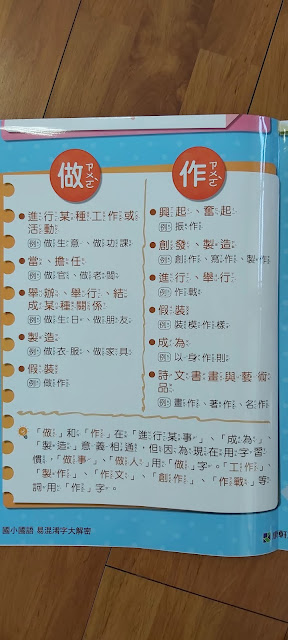 做 ㄗㄨㄛˋ
進行某種工作或
活動
例 做生意、做功課
當、擔任
例 做官、做老闆
舉辦、舉行、結
成某種關係
例 做生日、做朋友
製造
例 做衣服、做家具
假裝
例 做作
作 ㄗㄨㄛˋ
興起、奮起
例 振作
創發、製造
例 創作、寫作、製作
進行、舉行
例 作戰
假裝
例 裝模作樣
成為
例 以身作則
詩文書畫與藝術
品
例 畫作、著作、名作
「做」和「作」在「進行某事」、「成為」、
「製造」意義相通，但因為現在用字習
慣，「做事」、「做人」用「做」字。「工作」、
「製作」、「作文」、「創作」、「作戰」等
詞用「作」字。
國小國語 易混淆字大解密